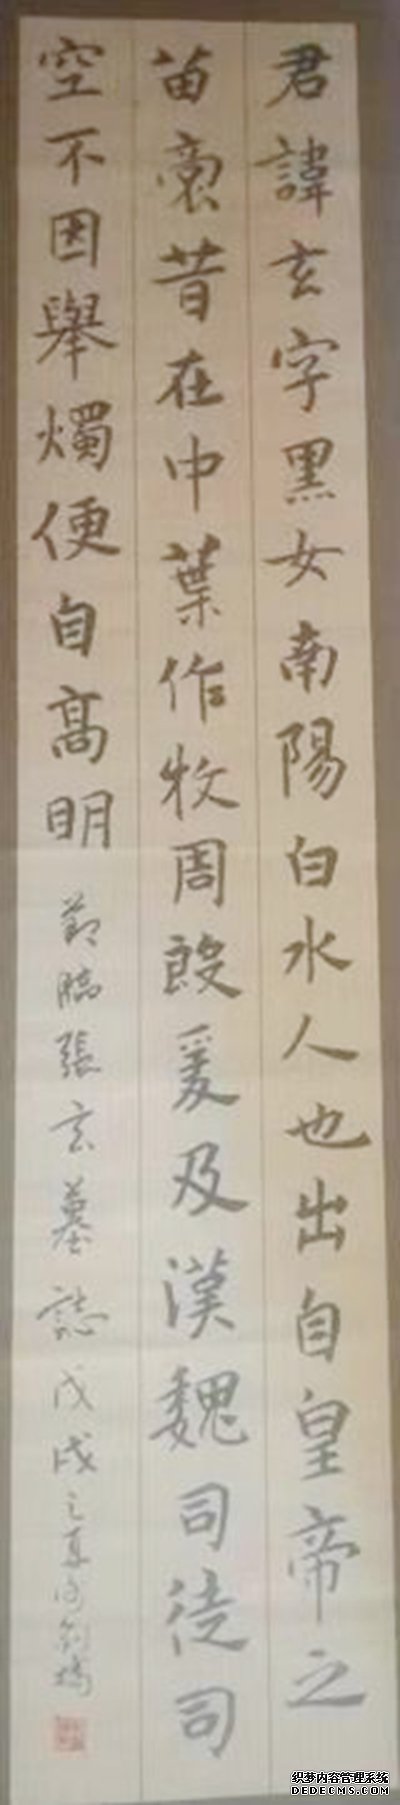 君諱玄字黑女南陽白水人也出自皇帝之
苗裔昔在中葉作牧周殷爰及漢魏司徒司
空不因舉燭便自高明
節臨張玄墓誌戊戌之夏
织梦内容管理系统
DEDECMS.COM